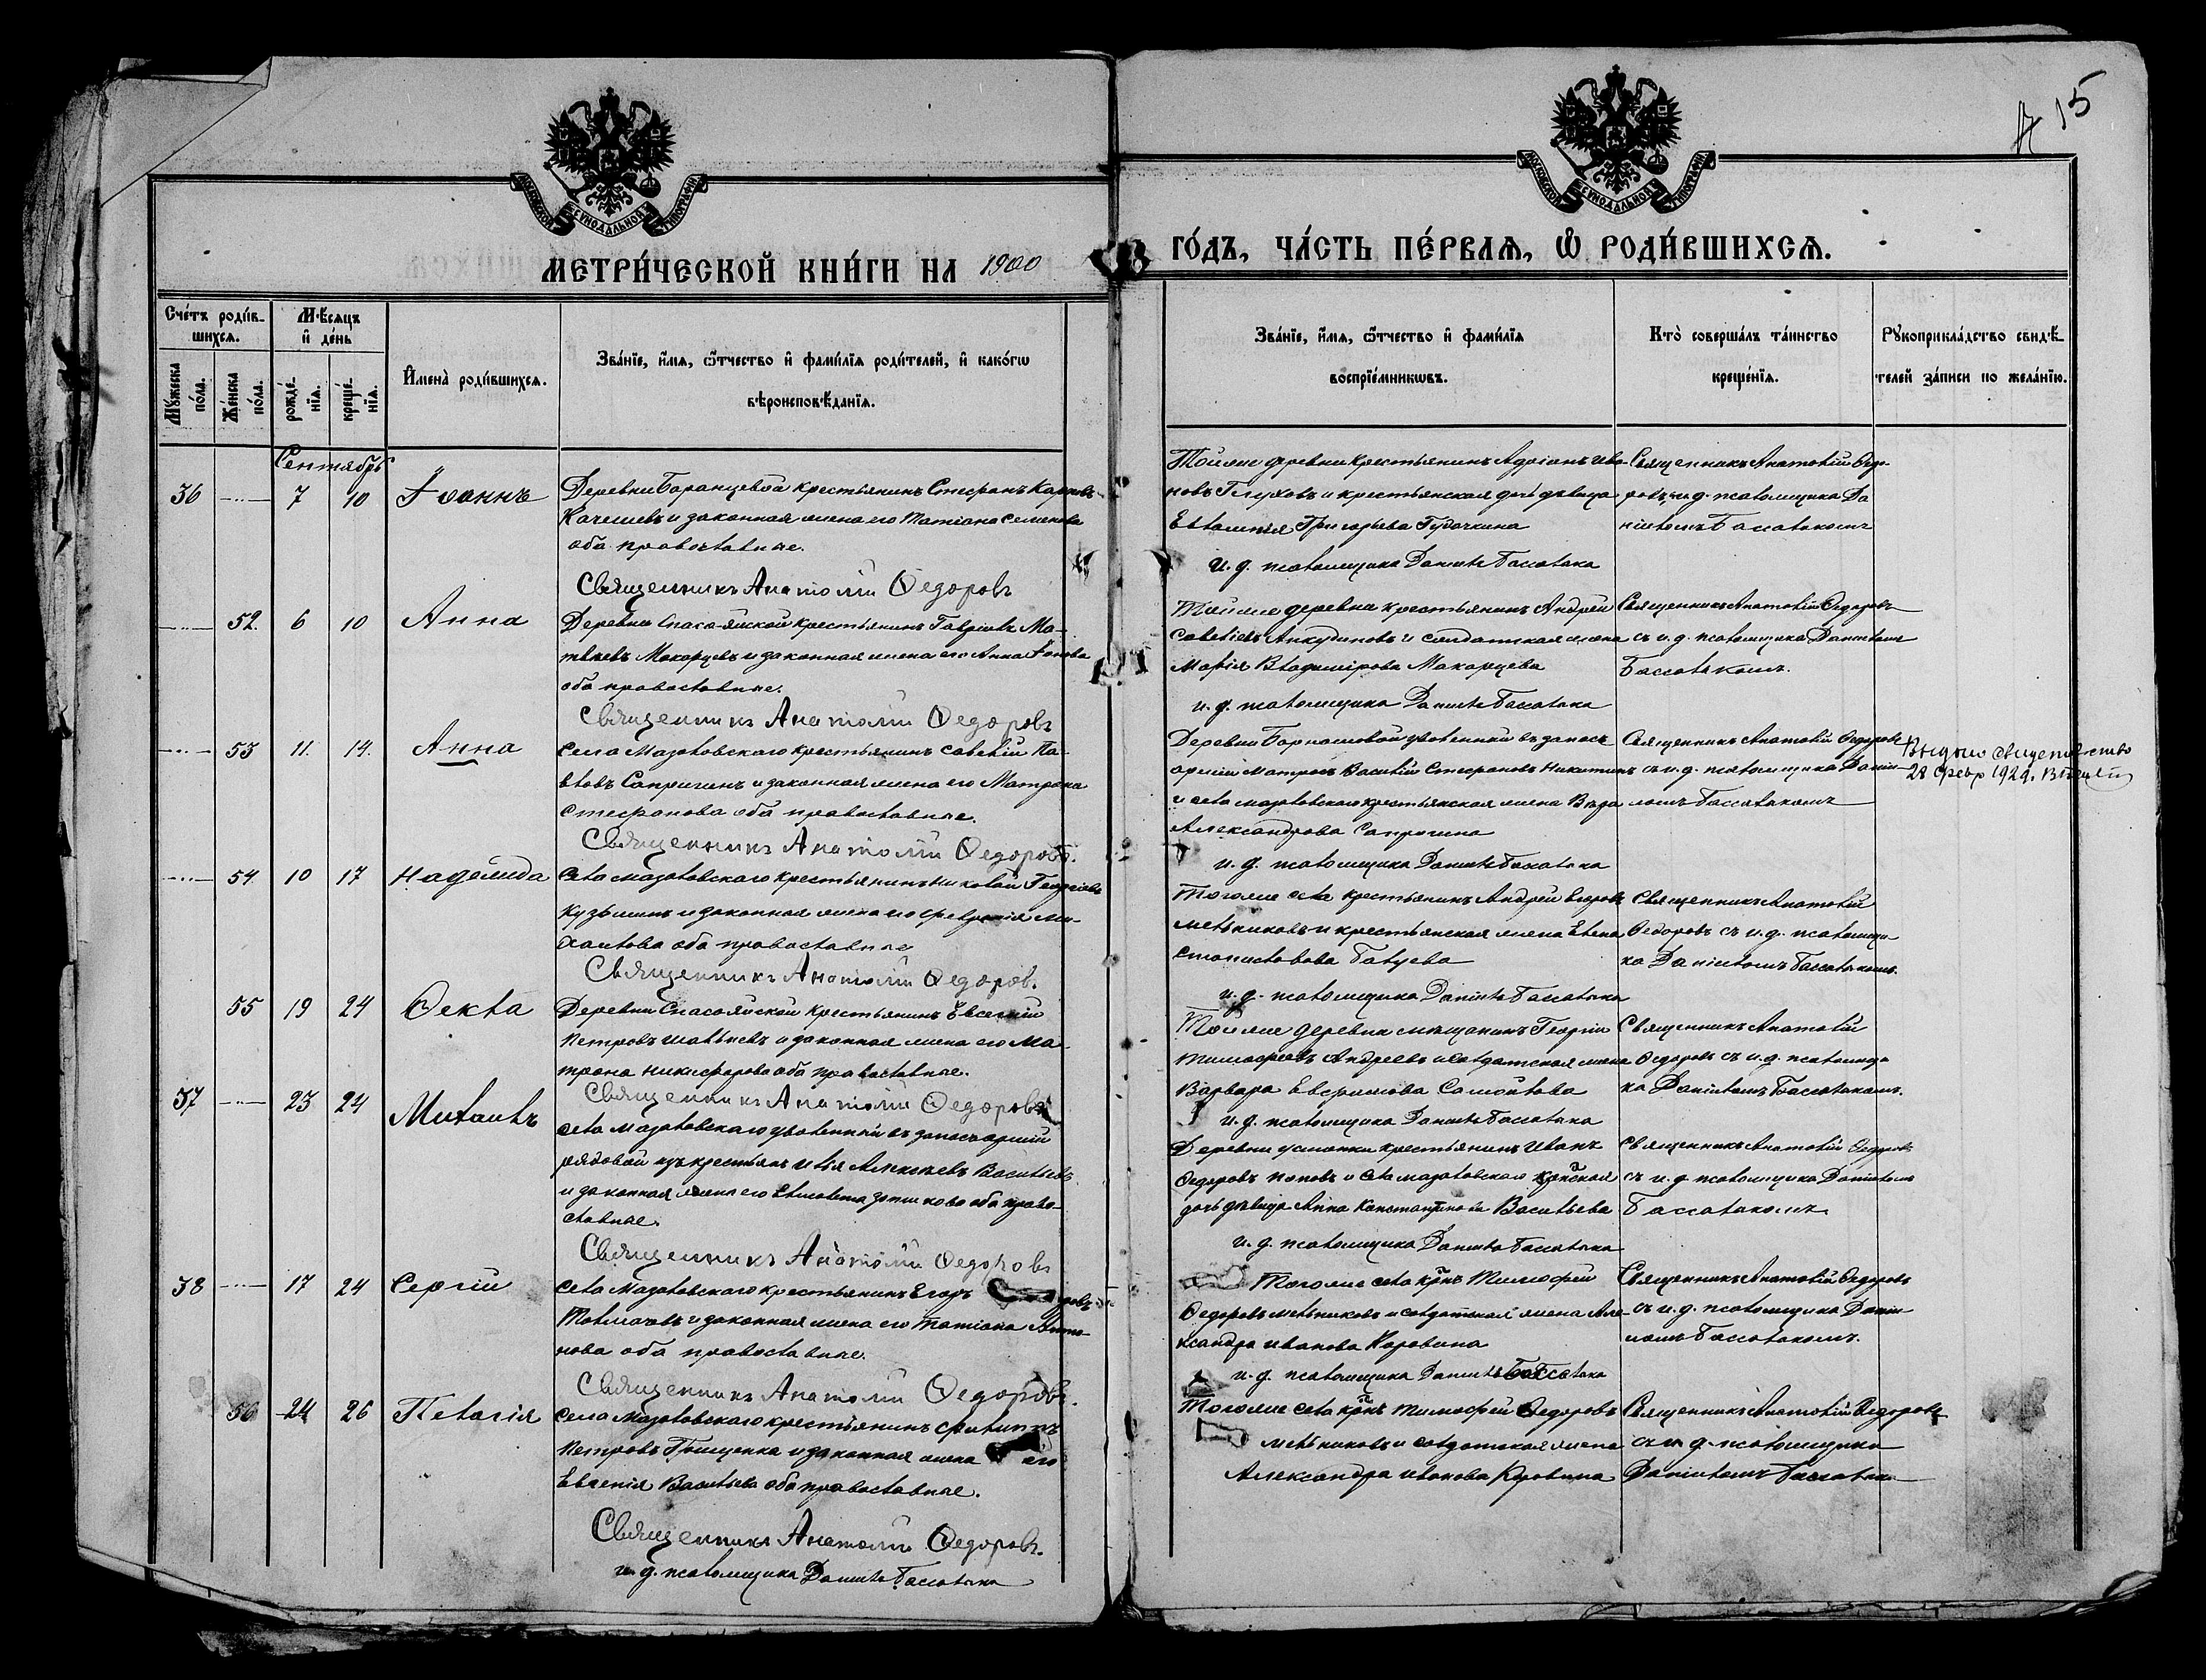 15
МОСКОВСКОЙ СѴНОДАЛЬНОЙ ТИПОГРАФІИ
МОСКОВСКОЙ СѴНОДАЛЬНОЙ ТИПОГРАФІИ
МЕТРИ́ЧЕСКОЙ КНИ́ГИ НА 1900
ГО́ДЪ, ЧА́СТЬ ПЕ́РВАѦ, Ѽ РОДИ́ВШИХСѦ.
Сче́тъ роди́в-
шихсѧ.
Мѹ́жеска по́ла.
Же́нска по́ла.
Мѣ́сѧцъ
и҆ де́нь
рожде́-
нїѧ.
креще́-
нїѧ.
И҆мена̀ роди́вшихсѧ.
Зва́нїе, и҆́мѧ, ѻ҆́тчество и҆ фами́лїѧ роди́телей, и҆ како́гѡ
вѣроисповѣ́данїѧ.
Зва́нїе, и҆́мѧ, ѻ҆́тчество и҆ фами́лїѧ
воспрїе́мникѡвъ.
Кто̀ соверша́лъ та́инство
креще́нїѧ.
Рѹкоприкла́дство свидѣ́-
телей за́писи по жела́нїю.
Сентябрь
36 7 10 Іоаннъ
Деревни Баранцевой крестьянинъ Стефанъ Карповъ
Качешевъ и законная жена его Татіана Семенова
оба православные.
Священникъ Анатолій Ѳедоровъ
Тойже деревни крестьянинъ Адріанъ Ива-
новъ Глуховъ и крестьянская дочь девица
Евлампія Григорьева Губочкина
и. д. псаломщика Даниилъ Бассалака
Священникъ Анатолій Ѳедо-
ровъ и.д. псаломщика Да
ніиломъ Бассалакомъ
52. 6 10 Анна
Деревни Спасо-Яйской крестьянинъ Гавріилъ Ма-
твѣевъ Макарцевъ и законная жена его Анна Іонова
оба православные.
Священникъ Анатолій Ѳедоровъ
Тойже деревни крестьянинъ Андрей
Савельевъ Анкудиновъ и солдатская жена
Марія Владимірова Макарцева
и. д. псаломщика Даниилъ Бассалака
Священникъ Анатолій Ѳедоровъ
съ и. д. псаломщика Даниломъ
Бассалакомъ.
53 11. 14. Анна
Села Мазаловскаго крестьянинъ Савелій Па-
вловъ Сапрыгинъ и законная жена его Матрона
Стефанова оба православные.
Священникъ Анатолій Ѳедоровъ.
Деревни уволенный въ запасъ
арміи матросъ Василій Стефановъ Никитинъ
и села Мазаловскаго крестьянская жена
Александрова
и. д. псаломщика Даниилъ Бассалака
Священникъ Анатолій Ѳедоровъ
съ и. д. псаломщика Даніи-
ломъ Бассалакомъ
Выдано свидетельство
28 февр 1929.
54 10 17 Надежда
Села Мазаловскаго крестьянинъ Николай Георгіевъ
Кузьминъ и законная жена его Февронія Ми-
хаилова оба православные
Священникъ Анатолій Ѳедоровъ.
Тогоже села крестьянинъ Андрей Егоровъ
Мельниковъ и крестьянская жена Елена
Станиславова
и. д. псаломщика Даниилъ Бассалака
Священникъ Анатолій
Ѳедоровъ съ и. д. псаломщи-
ка Даніиломъ Бассалакомъ.
55 19 24 Ѳекла
Деревни Спасояйской крестьянинъ Евсевій
Петровъ и законная жена его Ма-
трона Никифорова оба православные.
Священникъ Анатолій Ѳедоровъ
Тойже деревни мѣщанинъ Георгій
Тимофеевъ Андреевъ и солдатская жена
Варвара Евфимова Самойлова
и. д. псаломщика Даниилъ Бассалака
Священникъ Анатолій
Ѳедоровъ съ и. д. псаломщи-
ка Даніиломъ Бассалакомъ.
37 23 24 Михаилъ
Села Мазаловскаго уволенный въ запасъ арміи
рядовой изъ крестьянъ Илія Алексѣевъ Васильевъ
и законная жена его Елисавета оба право-
славные.
Священникъ Анатолій Ѳедоровъ
Деревни крестьянинъ Иванъ
Ѳедоровъ Поповъ и села Мазаловскаго
дочь дѣвица Анна Константинова Васильева
и. д. псаломщика Данила Бассалака
Священникъ Анатолій Ѳедоровъ
съ и. д. псаломщика Даниломъ
Бассалакомъ
38 17 24 Сергій
Села Мазаловскаго крестьянинъ Егоръ
Толмачовъ и законная жена его Татіана Анто-
нова оба православные.
Священникъ Анатолій Ѳедоровъ.
Тогоже села крнъ Тимофей
Ѳедоровъ Мельниковъ и солдатская жена Але-
ксандра Иванова Коровина
и. д. псаломщика Даниилъ Бассалака
Священникъ Анатолій Ѳедоровъ
съ и. д. псаломщика Даніи-
ломъ Бассалакомъ.
56 24 26 Пелагія
Села Мазаловскаго крестьянинъ Филиппъ
Петровъ Грищенка и законная жена его
Евгенія Васильева оба православные.
Священникъ Анатолій Ѳедоровъ.
и. д. псаломщика Даниилъ Бассалака
Тогоже села крнъ Тимофей Ѳедоровъ
Мельниковъ и солдатская жена
Александра Иванова Коровина
Священникъ Анатолій Ѳедоровъ
съ и. д. псаломщика
Даніиломъ Бассалака